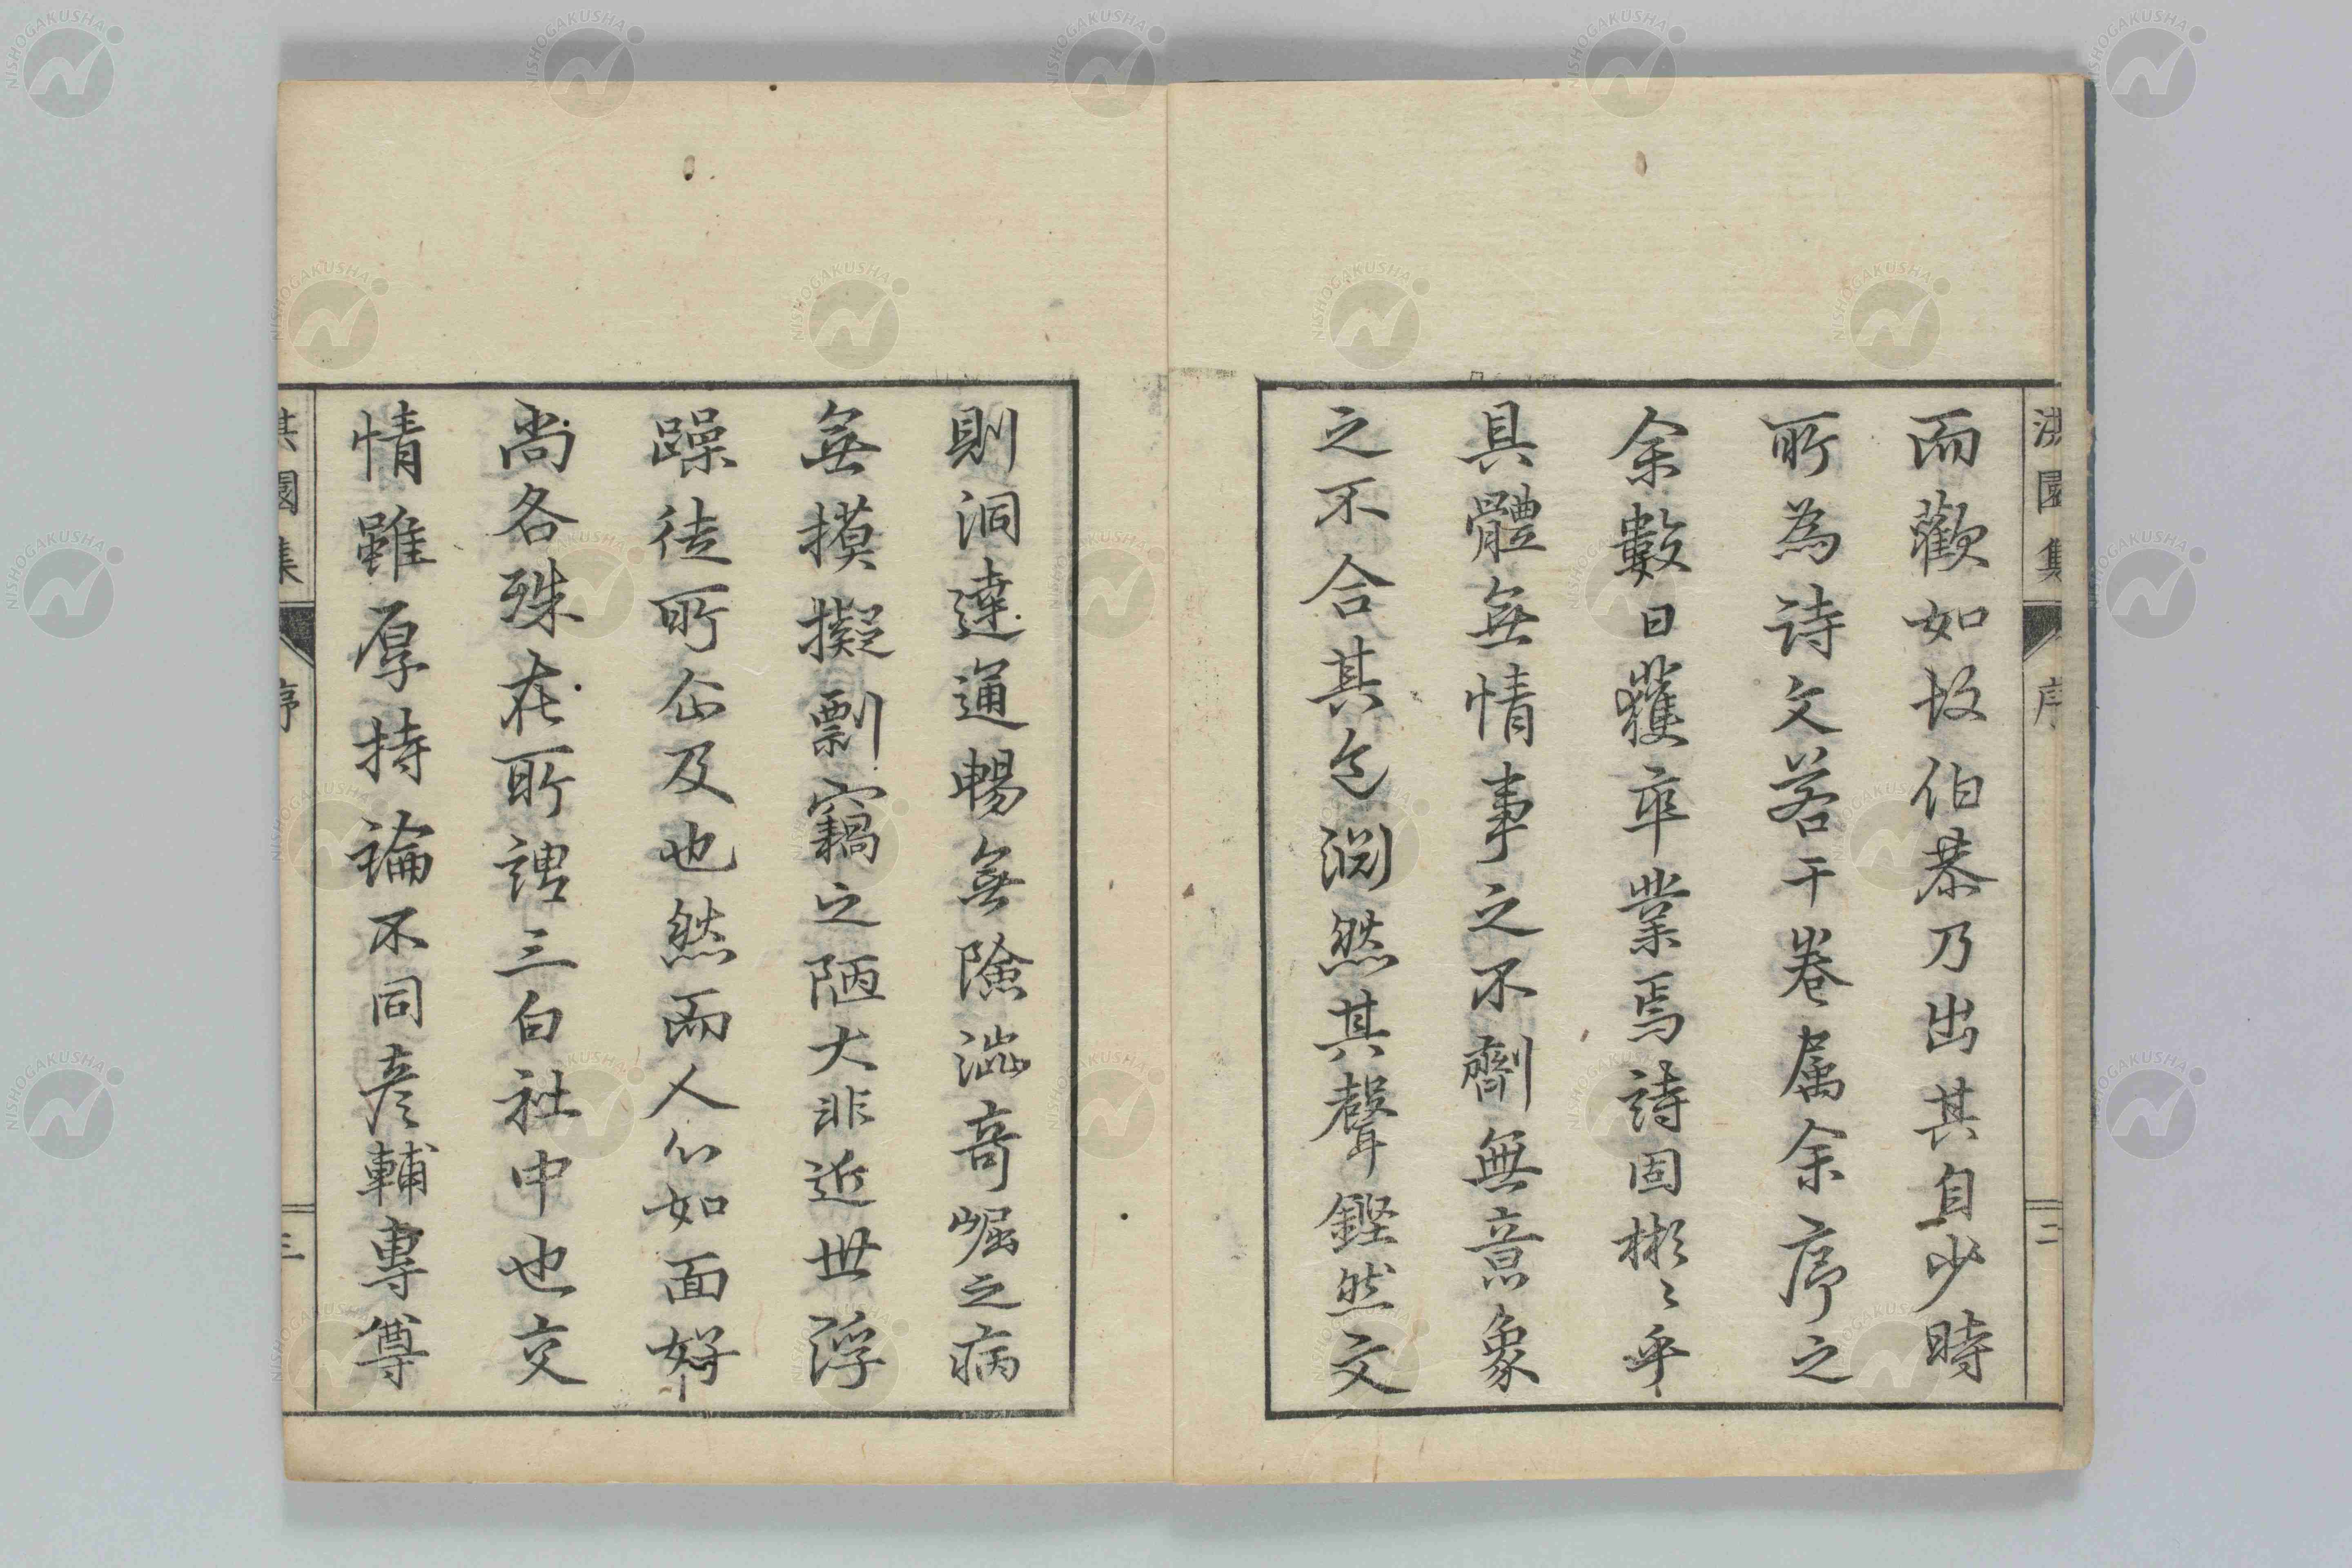 而歡如故伯恭乃出其自少時
所為詩文若干卷属余序之
余數日獲卒業焉詩固彬〻乎
具體無情事之不劑無意象
之不合其色渊然其聲鏗然文
淇園集
序
二
則洞達通暢無險澁奇崛之病
無摸擬剽竊之陋大非近世浮
躁徒所企及也然而人心如面好
尚各殊在所謂三白社中也交
情雖厚持論不同彦輔専尊
淇園集
序
三
NISHOGAKUSHA